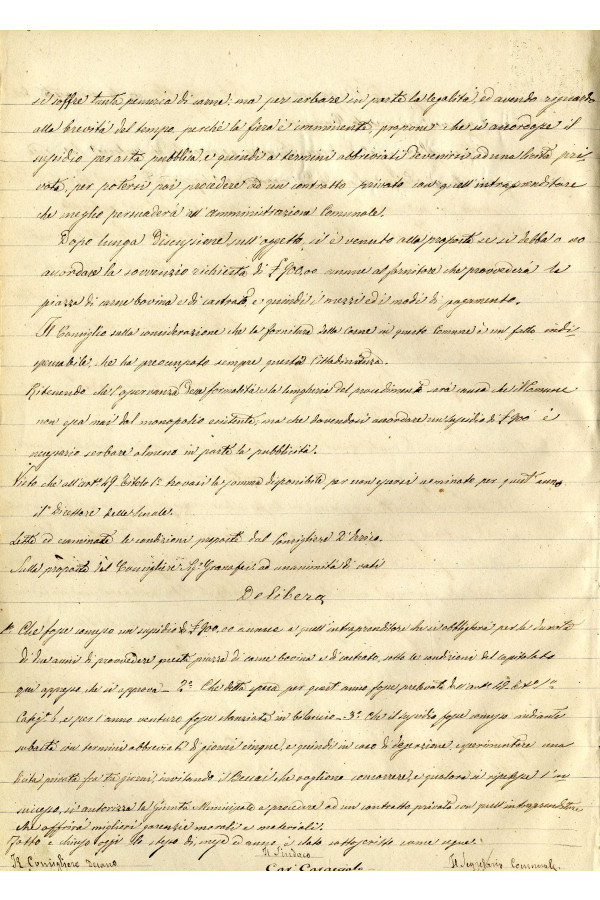 si soffre tanta penuria di carne; ma per serbare in parte la legalità, ed avendo riguardo
alla brevità del tempo, perché la fiera è imminente, propone che si accordasse il
susidio per asta pubblica, e quindi a termini abbreviati devenirsi ad una licita pri-
vata, per potersi poi procedere ad un contratto privato con quell'intraprenditore
che meglio persuaderà all'amministrazione Comunale.
Dopo lunga discussione sull'oggetto, si è venuto alla proposta se si debba o no
accordare la sovvenzio richiesta di £ 900,00 annue al fornitore che provvederà la
piazza di carne bovina e di castrato, e quindi i mezzi ed i modi di pagamento.
Il Consiglio sulla considerazione che la fornitura della Carne in questo Comune è un fatto indi-
spensabile, che ha preoccupato sempre questa Cittadinanza.
Ritenendo che l'osservanza della formalità e la lungheria del procedimento sarà causa che il Comune
non esca mai dal monopolio esistente, ma che dovendosi accordare un susidio di £ 900 è
necessario serbare almeno in parte la pubblicità.
Visto che all'art° 49 Titolo 1° trovasi la somma disponibile per non essersi nominato per quest'anno
il Direttore delle Scuole.
Lette ed esaminate le condizioni proposte dal Consigliere D'Errico.
Sulla proposta del Consigliere Sig. Granafei ad unanimità di voti
Delibera
1° Che fosse concesso un susidio di £ 900,00 annue a quell'intraprenditore che si obbligherà per la durata
di due anni di provvedere questa piazza di carne bovina e di castrato, sotto le condizioni del capitolato
qui appresso, che si approva – 2° Che detta spesa per quest'anno fosse prelevata dall'art° 49 Tit° 1°
Categ. e per l'anno venturo fosse stanziata in bilancio – 3° Che il susidio fosse concesso mediante
subasta con termini abbreviati di giorni cinque, e quindi in caso di deserzione, esperimentare una
licita privata fra tre giorni, invitando i Beccai che vogliono concorrere, e qualora si avesse l'in
successo, si autorizza la Giunta Municipale a procedere ad un contratto privato con quell'intraprenditore
che offrirà migliori garenzie morali e materiali.
Fatto e chiuso oggi lo stesso dì, mese ed anno, è stato sottoscritto come segue:
Il Consigliere Anziano Il Sindaco Il Segretario Comunale